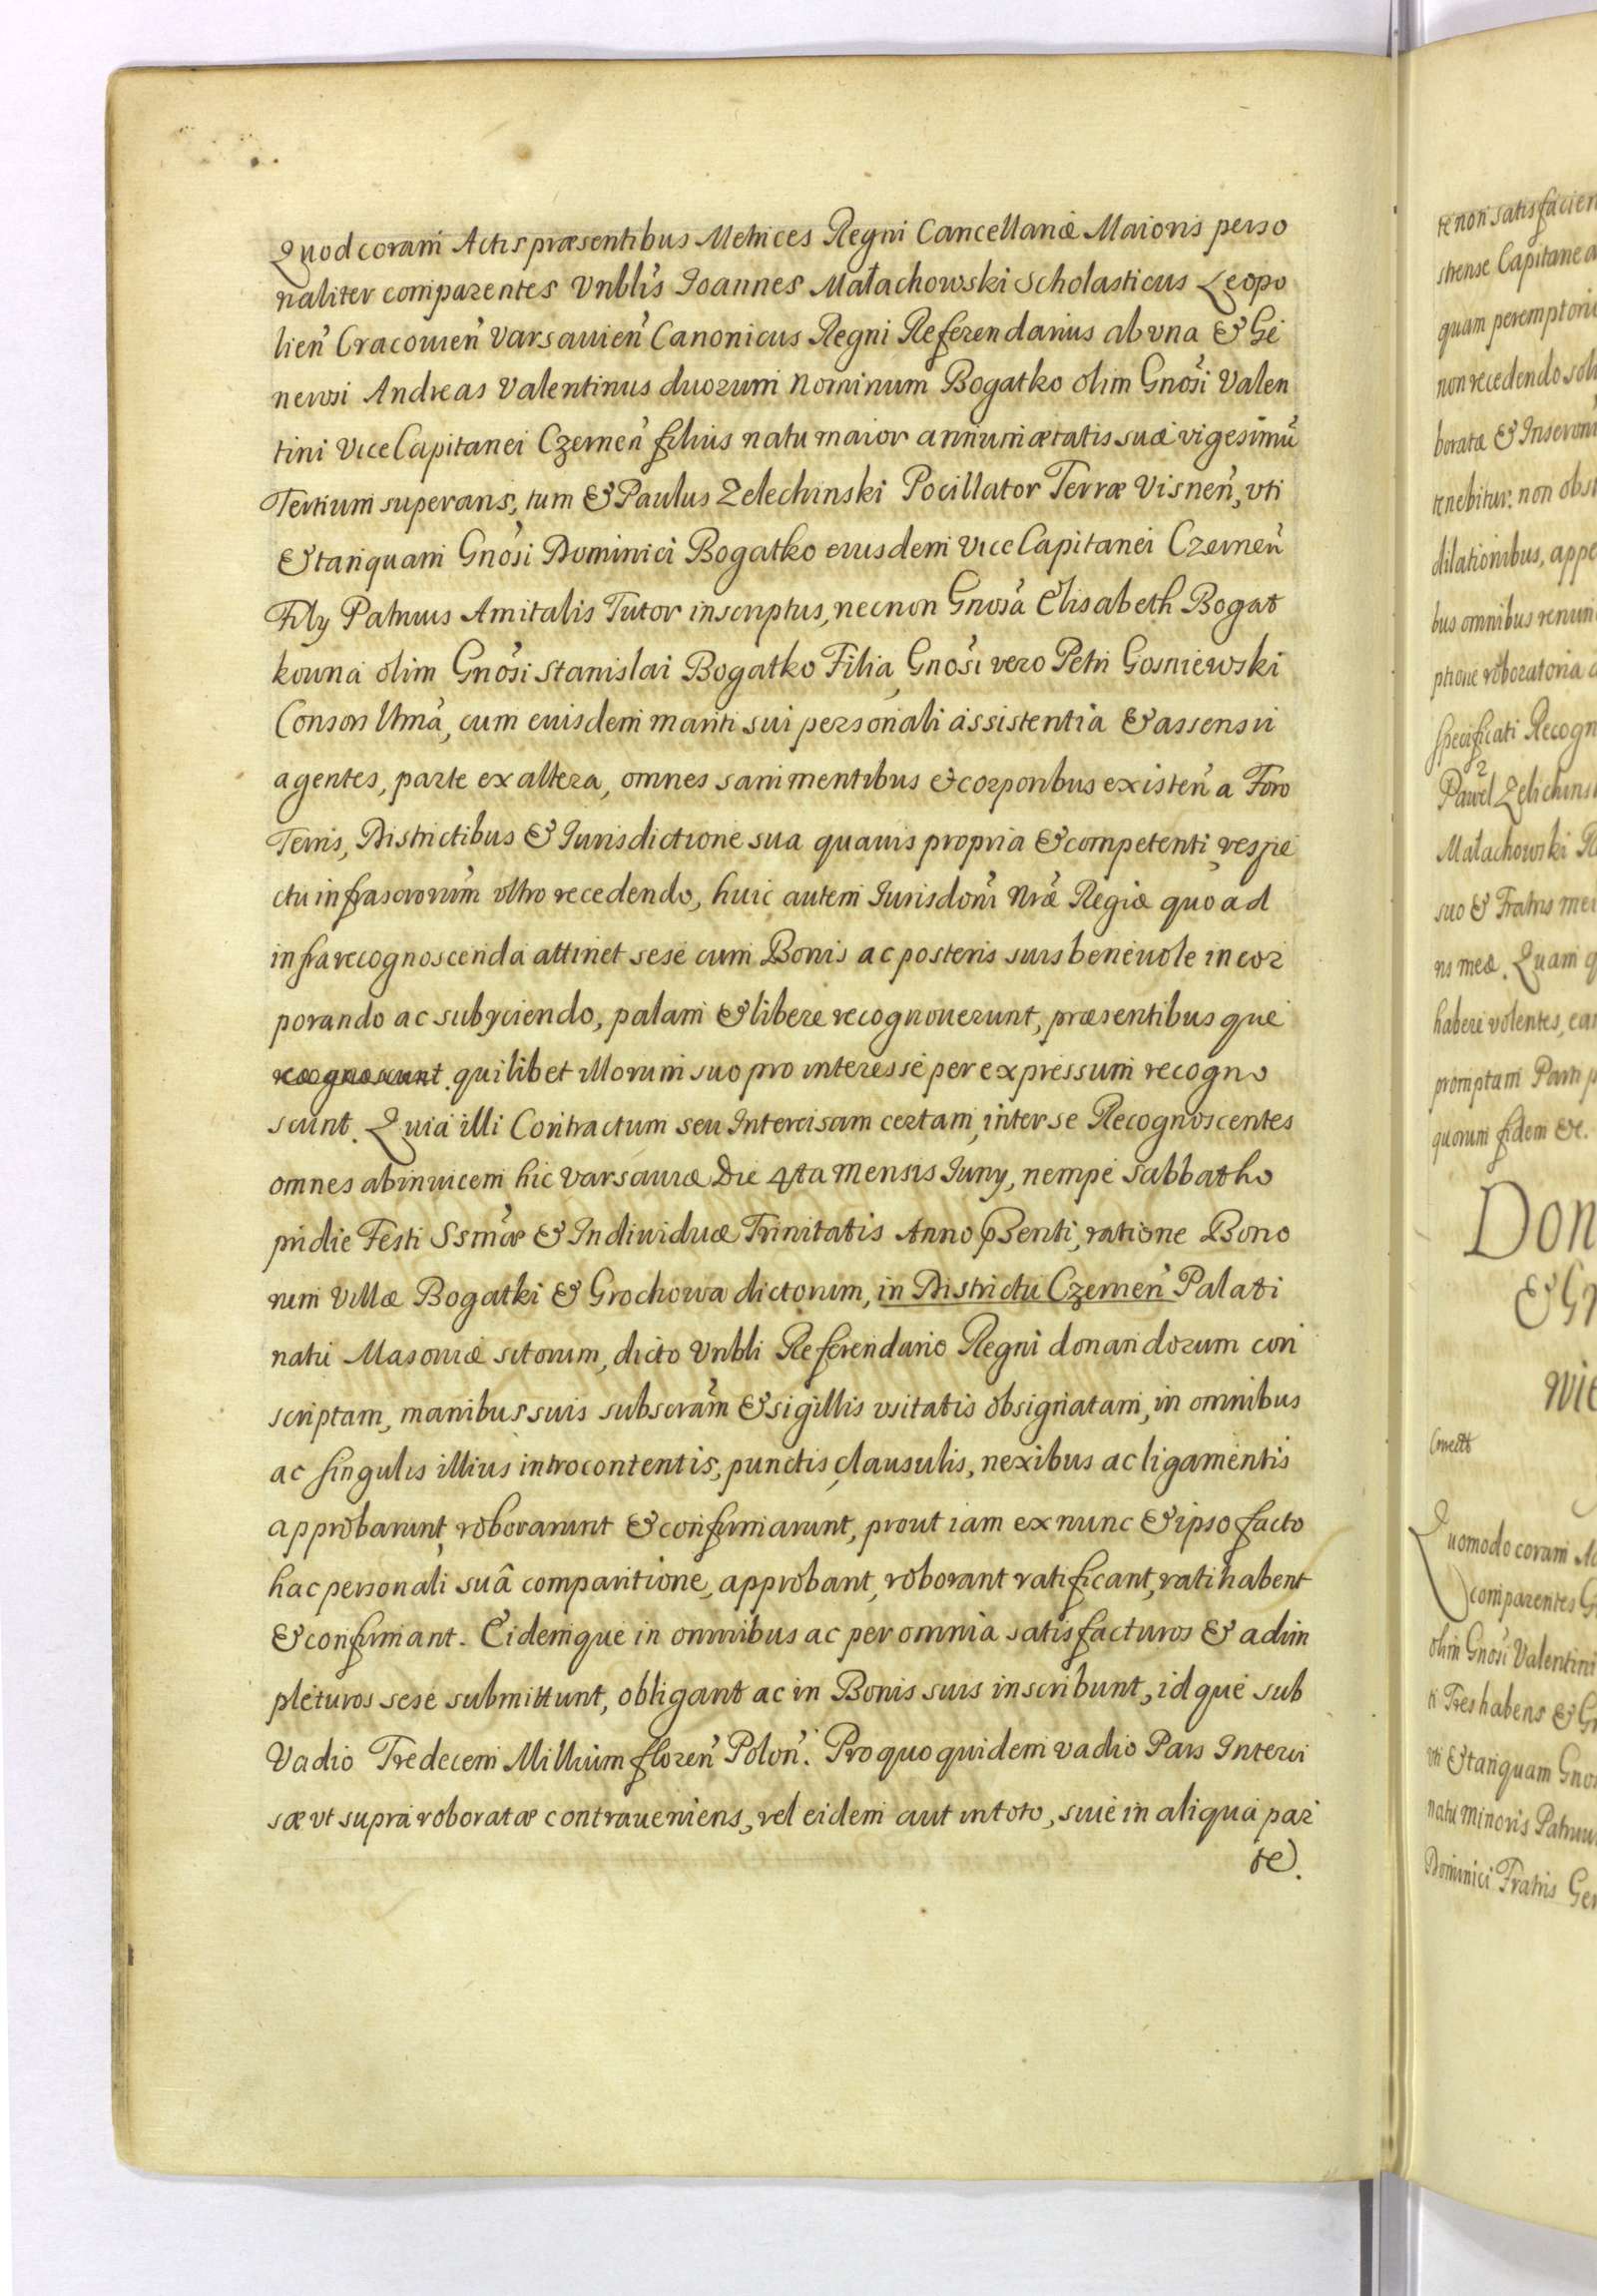 Quod coram Actis præsentibus Metrices Regni Cancellariæ Maioris perso
naliter comparentes Vnblis Ioannes Małachowski Scholasticus Leopo
lien̄ Cracouien̄ Varsauien̄ Canonicus Regni Referendarius ab vna & Ge
nerosi Andreas Valentinus duorum nominum Bogatko olim Gnosi Valen
tini ViceCapitanei Czernen̄ filius natu maior annum ætatis suæ vigesimū
Tertium superans, tum & Paulus Zelechinski Pocillator Terræ Visnen̄, vti
& tanquam Gnosi Dominici Bogatko eiusdem ViceCapitanei Czernen̄
Filÿ Patruus Amitalis Tutor inscriptus, necnon Gnosa Elisabeth Bogat
kouna olim Gnosi Stanislai Bogatko Filia, Gnosi vero Petri Gosniewski
Consors Ltma, cum eiusdem mariti sui personali assistentia & assensu
agentes, parte ex altera, omnes sani mentibus & corporibus existen̄ a Foro
Terris, Districtibus & Iurisdictione sua quauis propria & competenti, respe
ctu infrascrorum vltro recedendo, huic autem Iurisdoni Nræ Regiæ quo ad
infrarecognoscenda attinet sese cum Bonis ac posteris suis beneuole incor
porando ac subÿciendo, palam & libere recognouerunt, præsentibus que
recognoscunt. quilibet illorum suo pro interesse per expressum recogno
scunt. Quia illi Contractum seu Intercisam certam, inter se Recognoscentes
omnes abinuicem hic Varsauiæ Die 4ta Mensis Iunÿ, nempe Sabbatho
pridie Festi Ssmæ & Indiuiduæ Trinitatis Anno pŝenti, ratione Bono
rum Villæ Bogatki & Grochowa dictorum, in Districtu Czernen̄ Palati
natu Masouiæ sitorum, dicto Vnbli Referendario Regni donandorum con
scriptam, manibus suis subscram̄ & sigillis vsitatis obsignatam, in omnibus
ac singulis illius introcontentis, punctis clausulis, nexibus ac ligamentis
approbarunt, roborarunt & confirmarunt, prout iam ex nunc & ipso facto
hac personali suâ comparitione, approbant, roborant ratificant, ratihabent
& confirmant. Eidemque in omnibus ac per omnia satisfacturos & adim
pleturos sese submittunt, obligant ac in Bonis suis inscribunt, idque sub
Vadio Tredecem Millium floren̄ Polon̄. Pro quo quidem vadio Pars Interci
sæ vt supra roboratæ contraueniens, vel eidem aut in toto, siue in aliqua par
te.
te non satisfacien
strense Capitanea
quam peremptori
non recedendo sol
boratæ & Inscroni
tenebitur. non obs
dilationibus, appe
bus omnibus renun
ptione roboratoria
specificati Recogn
Paweł Zelichins
Małachowski R
suo & Fratris mei
ris meæ. Quam
habere volentes, ea
promptam Parti p
quorum fidem &c.
Don
& Gr
wie
Quomodo coram Ac
comparentes G
olim Gnosi Valentini
ti Tres habens & G
vti & tanquam Gno
natu minoris Patruu
Dominici Fratris Ger